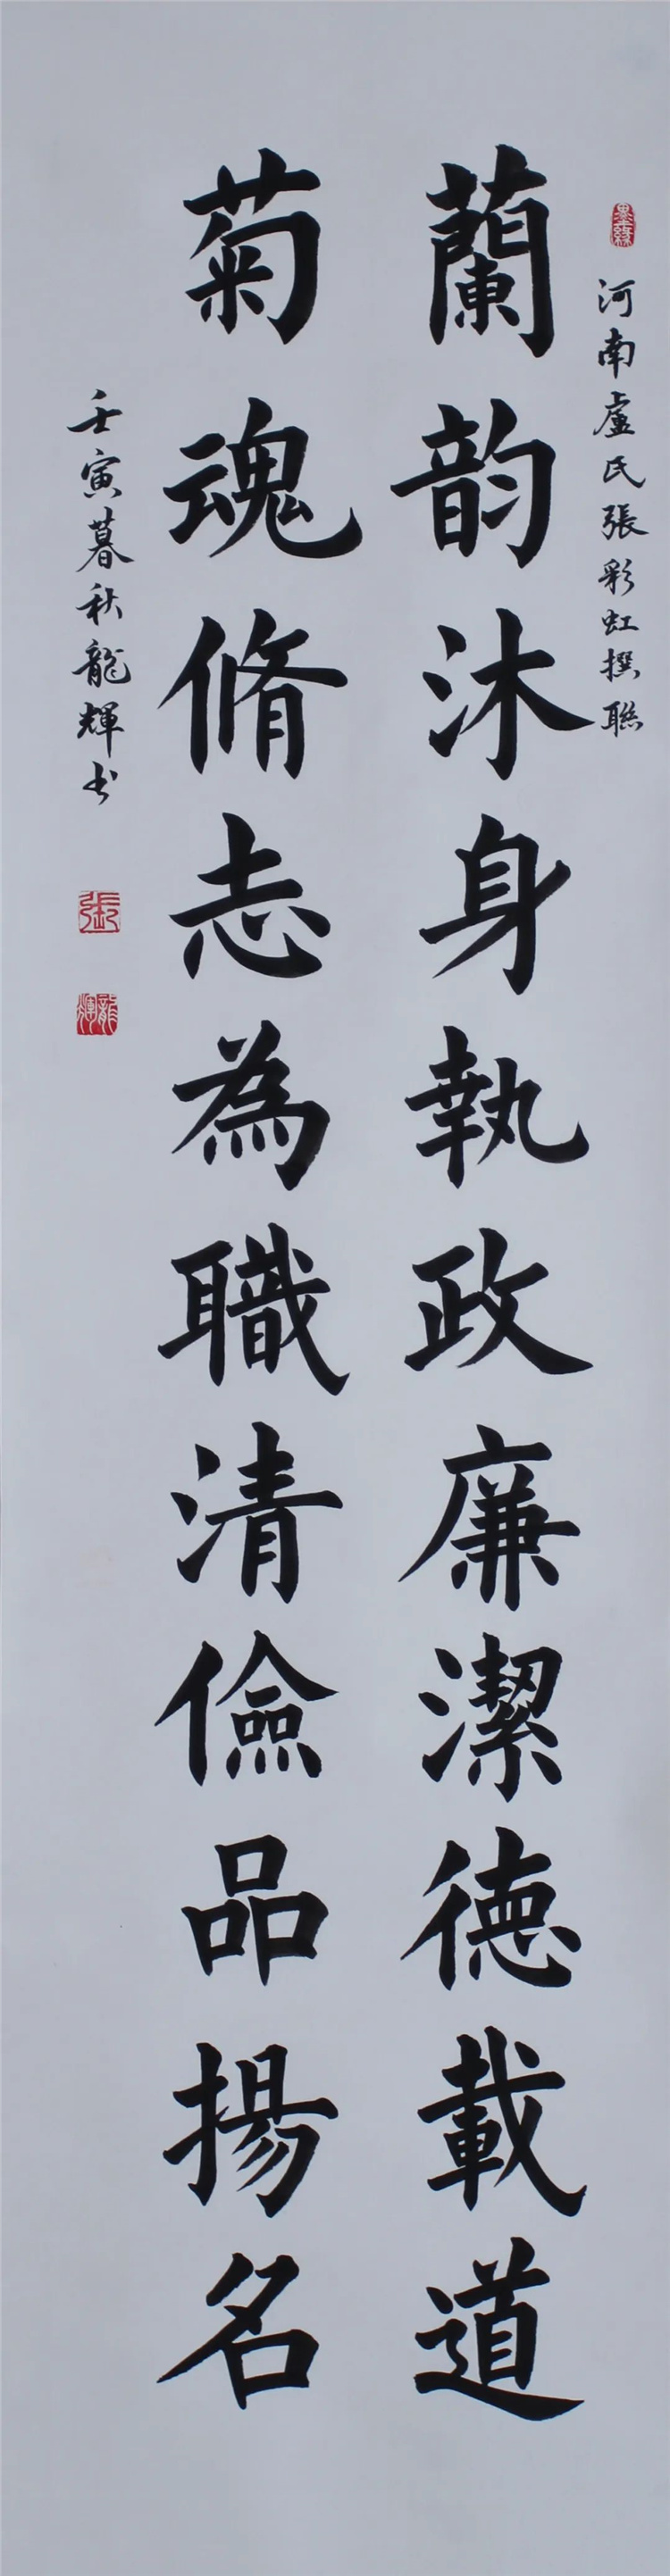 河南盧氏張彩虹撰聯
蘭韵沐身執政廉潔德載道
菊魂脩志為職清儉品揚名
壬寅暮秋龍輝书
張
龍輝